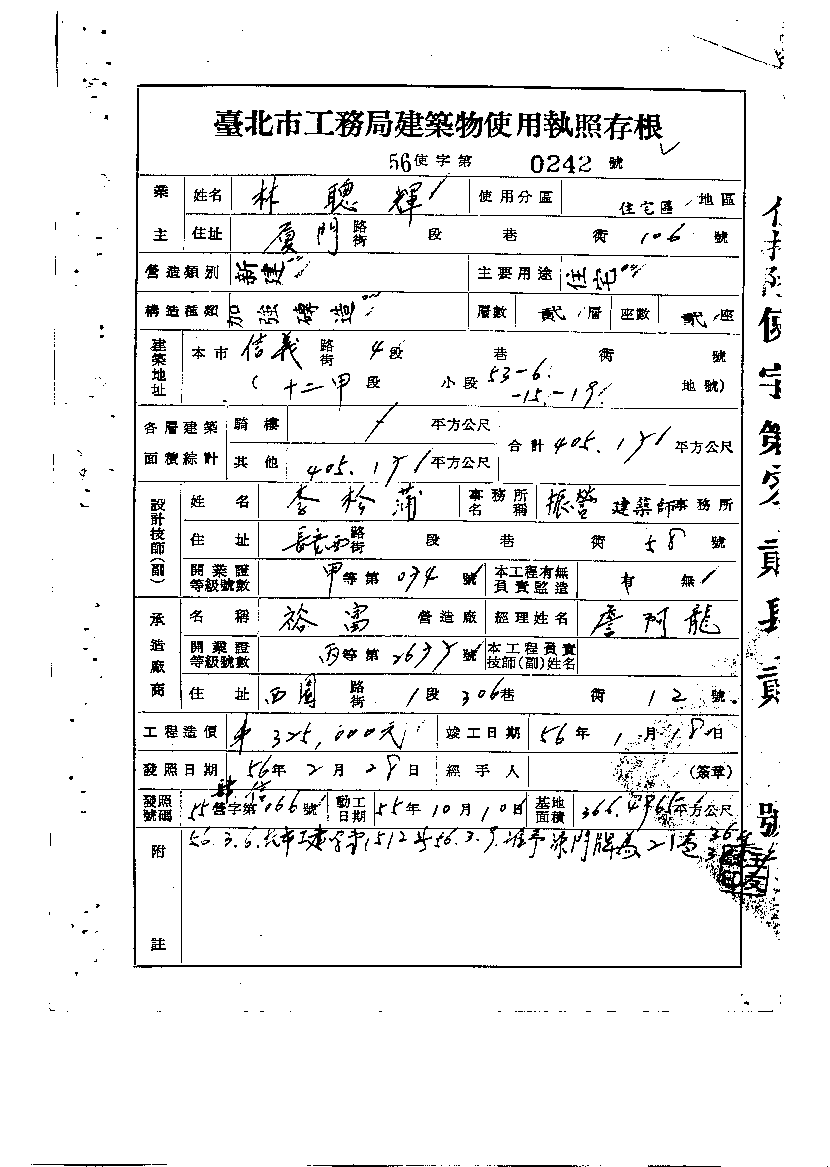 臺北市工務局建築物使用執照存根
56使字第 0242 號
業主 姓名 林聰輝 使用分區 住宅區 地區
住址 廈門 路街 段 巷 衖 106 號
營造類別 新建 主要用途 住宅
構造種類 加強磚造 層數 貳 層 座數 貳 座
建築地址 本市 信義 路街 4段 巷 衖 號
( 十二甲 段 小段 53-6 -15.-19 地號)
各層建築面積綜計 騎樓 平方公尺 合計 平方公尺
其他 平方公尺
設計技師(副) 姓名 事務所名稱 振營 建築師事務所
住址 長安西 路街 段 巷 衖 58 號
開業證等級號數 甲等第 034 號 本工程有無負責監造 有 無
承造廠商 名稱 裕富 營造廠 經理姓名 廖阿龍
開業證等級號數 丙等第 號 本工程負責技師(副)姓名
住址 西園 路街 1段 306巷 衖 12 號
工程造價 325,000元 竣工日期 56年 1月 18日
發照日期 56年 2月 28日 經手人 (簽章)
發照號碼 55營字第 066 號 動工日期 55年 10月 10日 基地面積 平方公尺
附註 56.3.6. 北市工建字第1512號56.3.9.